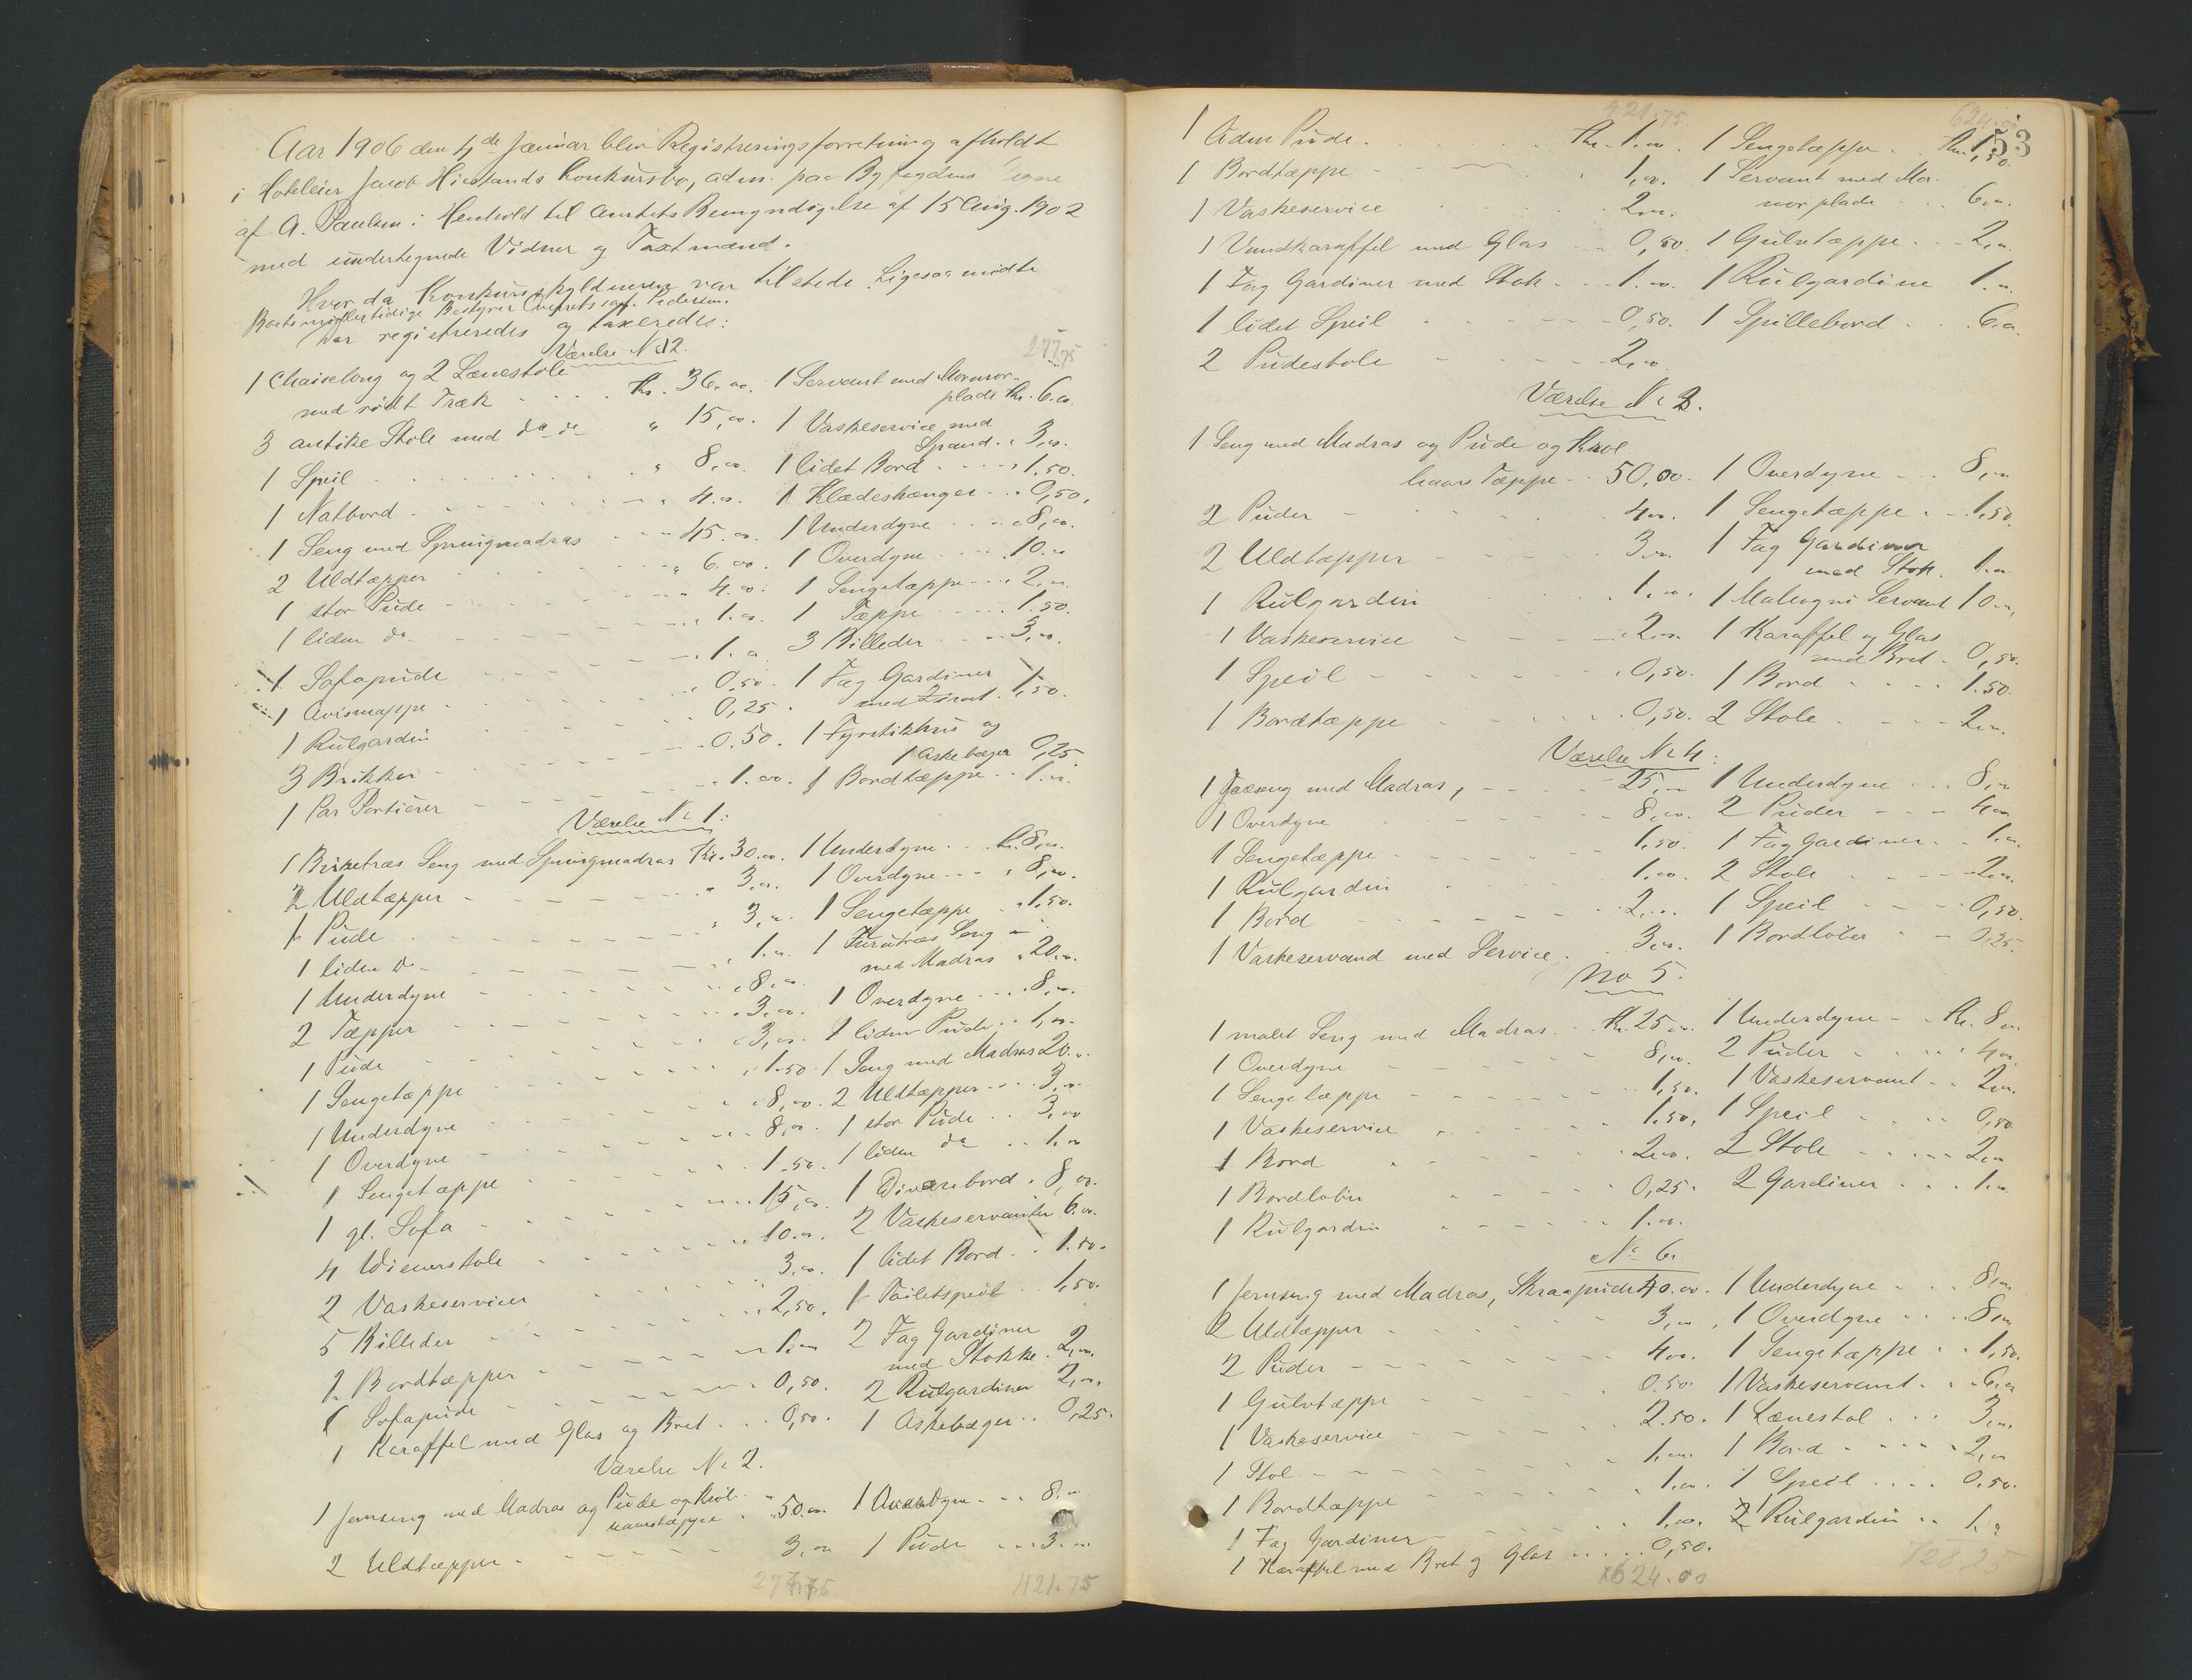 Aar 1906 den 4de Januar blev Registreringsforretning afholdt
i Hoteleier Jacob Hiestands Konkursbo, adm. paa Byfogdens Vegne
af A. Paulsen i Henhold til Amtets Bemyndigelse af 15 Aug. 1902
med undertegnede Vidner og Taxtmænd.
Hvor da Konkursskyldneren var tilstede. Ligesaa mødte
Boets midlertidige Bestyrer Overretssagf. Pedersen.
Der registreredes og taxeredes:
Værelse No 12.
277,75
1 Chaiselong og 2 Lænestole
med rødt Træk . . . . Kr. 36.00. 1 Servant med Marmor-
plade Kr. 6.00
3 antike Stole med do de " 15,00. 1 Vaskeservice med
Spand. " 3,00.
1 Speil . . . . " 8,00. 1 lidet Bord . . . . " 1,50.
1 Natbord . . . . " 4.00. 1 Klædeshænger . . " 0,50.
1 Seng med Springmadras . . . 45.00. 1 Underdyne . . . . " 8,00.
2 Uldtæpper . . . . " 6.00. 1 Overdyne . . . . 10.00
1 stor Pude . . . . " 4.00. 1 Sengetæppe . . . " 2,00.
1 liden do . . . . " 1.00. 1 Tæppe . . . . 1.50.
1 Sofapude . . . . 1.00 3 Billeder . . . . 3,00.
1 Avismappe . . . . 0.50. 1 Fag Gardiner
med Zirat. 1,50.
1 Rulgardin . . . . 0,25.
3 Brikker . . . . 0.50. 1 Fyrstikhus og
1 Askebæger 0,25
1 Par Portierer . . . . 1.00. 1 Bordtæppe . . 1.00.
Værelse No 1:
1 Birketræs Seng med Springmadras Kr. 30.00. 1 Underdyne . . . Kr. 8,00.
2 Uldtæpper . . . . " 3,00. 1 Overdyne . . . " 8,00.
1 Pude . . . . " 3,00. 1 Sengetæppe . . " 1.50.
1 liden do . . . . " 1.00. 1 Furutræs Seng
med Madras " 20.00.
1 Underdyne . . . . " 8,00.
2 Tæpper . . . . " 3,00. 1 Overdyne . . . . " 8,00.
1 Pude . . . . " 3,00. 1 liden Pude . . 1,00.
1 Sengetæppe . . . . " 1.50. 1 Seng med Madras 20.00.
1 Underdyne . . . . " 8,00. 2 Uldtæpper . . . 3,00.
1 Overdyne . . . . 8,00. 1 stor Pude . . 3,00
1 Sengetæppe . . . . 1.50. 1 liden do . . 1.00
1 gl. Sofa . . . . 15,00. 1 Divanbord . 8,00.
4 Wienerstole . . . . 10.00. 2 Vaskeservanter 6.00.
2 Vaskeservicer . . . . 3,00. 1 lidet Bord . . 1.50.
5 Billeder . . . . 2,50. 1 Toiletspeil . . 1,50.
2 Bordtæpper . . . . 1.00 2 Fag Gardiner
med Stokke. 2,00.
1 Sofapude . . . . 0,50. 2 Rulgardiner 2,00.
1 Karaffel med Glas og Bret . . . 0,50. 1 Askebæger . . 0,25.
Værelse No 2.
1 Jernseng med Madras og Pude og Krøl-
haarstæppe . . 50.00. 1 Overdyne . . . 8.00
2 Uldtæpper . . . . 3,00 1 Pude . . . 3.00
421.75
153
421.75.
624.00
1 liden Pude . . . . Kr. 1.00. 1 Sengetæppe . . Kr. 1,50.
1 Bordtæppe . . . . 1,00. 1 Servant med Mar-
morplade . . . 6.00.
1 Vaskeservice . . . . 2,00.
1 Vandkaraffel med Glas . . 0,50. 1 Gulvtæppe . . . 2,00.
1 Fag Gardiner med Stok . . . 1.00. 1 Rulgardine 1.00.
1 lidet Speil . . . . 0,50. 1 Spillebord . . . 6.00.
2 Pudestole . . . . 2,00
Værelse No 3.
1 Seng med Madras og Pude og Krøl
haars Tæppe . . 50,00. 1 Overdyne . . . 8,00
2 Puder . . . . 4,00. 1 Sengetæppe . . . 1,50.
2 Uldtæpper . . . . 3,00. 1 Fag Gardiner
med Stok. 1.00
1 Rulgardin . . . . 1,00. 1 Mahogni Servant 10.00,
1 Vaskeservice . . . . 2,00. 1 Karaffel og Glas
med Bret . 0,50.
1 Speil . . . . 0,50. 1 Bord . . . . 1.50.
1 Bordtæppe . . . . 0,50. 2 Stole . . . . 2,00.
Værelse No 4:
1 Jernseng med Madras, . . . 25,00 1 Underdyne . . . 8,00
1 Overdyne . . . . 8,00. 2 Puder . . . 4,00
1 Sengetæppe . . . . 1,50. 1 Fag Gardiner . . 1.00.
1 Rulgardin . . . . 1.00. 2 Stole . . . . 2,00.
1 Bord . . . . 2,00. 1 Speil . . . 0,50.
1 Vaskeservand med Service. 3,00. 1 Bordløber . . 0,25.
No 5.
1 malet Seng med Madras . . Kr. 25,00. 1 Underdyne . . Kr. 8,00.
1 Overdyne . . . . 8,00. 2 Puder . . . . 4,00.
1 Sengetæppe . . . . 1,50. 1 Vaskeservant . . 2,00.
1 Vaskeservice . . . . 1.50, 1 Speil . . . . 0,50
1 Bord . . . . 2,00. 2 Stole . . . . 2,00
1 Bordløber . . . . 0,25. 2 Gardiner . . . 1.00.
1 Rulgardin . . . . 1.00.
No 6.
1 Jernseng med Madras, Skraapude 40.00. 1 Underdyne . . . 8,00
2 Uldtæpper . . . . 3,00. 1 Overdyne . . . 8,00
2 Puder . . . . 4,00. 1 Sengetæppe . . . 1,50.
1 Gulvtæppe . . . . 0.50. 1 Vaskeservant . . . 6,00
1 Vaskeservice . . . . 2.50. 1 Lænestol . . . 3,00.
1 Stol . . . . 1,00. 1 Bord . . . . 2,00
1 Bordtæppe . . . . 1.00. 1 Speil . . . . 0.50.
1 Fag Gardiner . . . . 1,00. 1 Rulgardin . . 1.00
1 Karaffel med Bret og Glas . . . . 0,50.
624.00
728 25